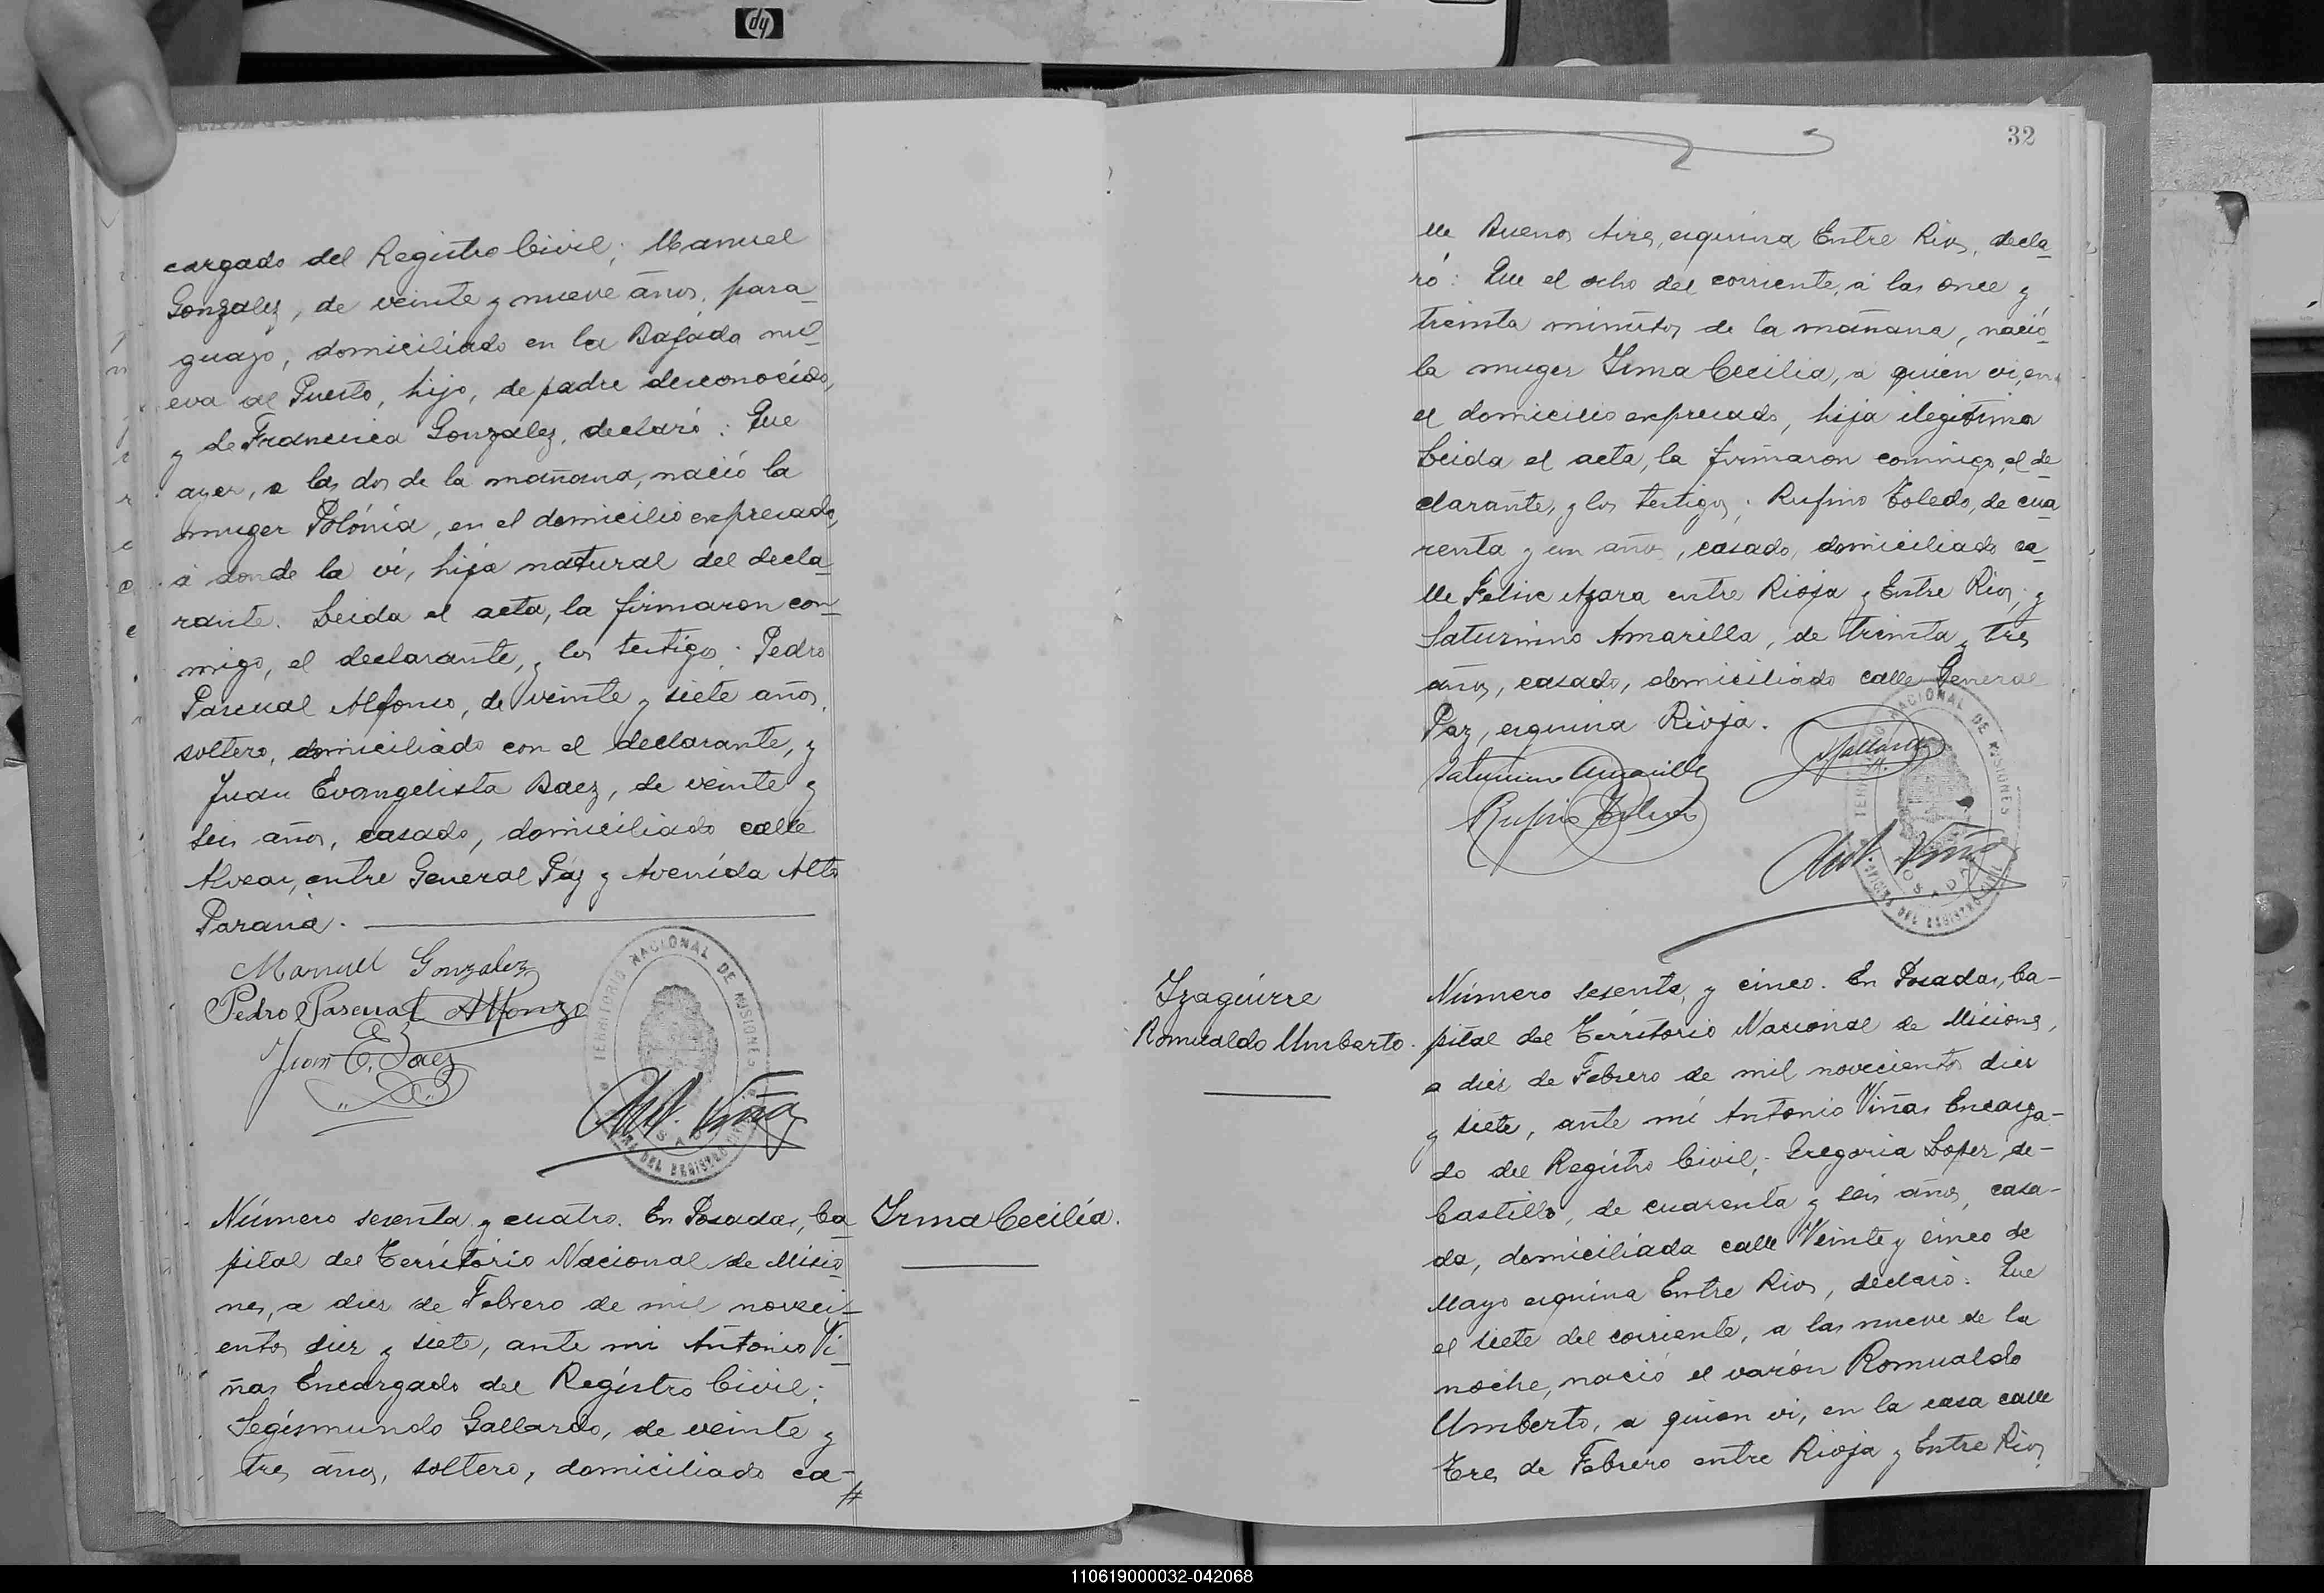 hp
cargado del Registro Civil; Manuel
Gonzalez, de veinte y nueve años, para-
guayo, domiciliado en la Bajada nu-
eva al Puerto, hijo, de padre desconocido,
y de Francisca Gonzalez, declaró: Que
ayer, a las dos de la mañana, nació la
muger Polónia, en el domicilio expresado,
á donde la vi, hija natural del decla-
rante. Leida el acta, la firmaron con-
migo, el declarante, y los testigos: Pedro
Pascual Alfonso, de veinte y siete años,
soltero, domiciliado con el declarante, y
Juan Evangelista Baez, de veinte y
seis años, casado, domiciliado calle
Alvear, entre General Páz y Avenida Alto
Paraná.
Manuel Gonzalez
Pedro Pascual Alfonzo
Juan E. Baez
TERRITORIO NACIONAL DE MISIONES
Ant. Viñas
Número sesenta y cuatro. En Posadas, Ca-
pital del Território Nacional de Misio-
nes, a diez de Febrero de mil noveci-
entos diez y siete, ante mi Antonio Vi-
ñas Encargado del Registro Civil;
Segismundo Gallardo, de veinte y
tres años, soltero, domiciliado ca-
Irma Cecilia.
32
lle Buenos Aires, esquina Entre Rios, decla-
ró: Que el ocho del corriente, á las once y
treinta minutos de la mañana, nació
la muger Irma Cecilia, a quien vi, en
el domicilio expresado, hija ilegitima
Leida el acta, la firmaron conmigo, el de
clarante, y los testigos; Rufino Toledo, de cua
renta y un años, casado, domiciliado ca-
lle Felix Azara entre Rioja y Entre Rios; y
Saturnino Amarilla, de treinta y tres
años, casado, domiciliado calle General
Paz, esquina Rioja.
Saturnino Amarilla
SGallardo
Rufino Toledo
TERRITORIO NACIONAL DE MISIONES
OFICINA DEL REGISTRO CIVIL
POSADAS
Ant. Viñas
Izaguirre
Romualdo Umberto.
Número sesenta y cinco. En Posadas, Ca-
pital del Território Nacional de Misiones,
a diez de Febrero de mil novecientos diez
y siete, ante mi Antonio Viñas Encarga-
do del Registro Civil; Gregoria Lopez de-
Castillo, de cuarenta y seis años, casa-
da, domiciliada calle Veinte y cinco de
Mayo esquina Entre Rios, declaró: Que
el siete del corriente, a las nueve de la
noche, nació el varón Romualdo
Umberto, a quien vi, en la casa calle
Tres de Febrero entre Rioja y Entre Rios,
110619000032-042068